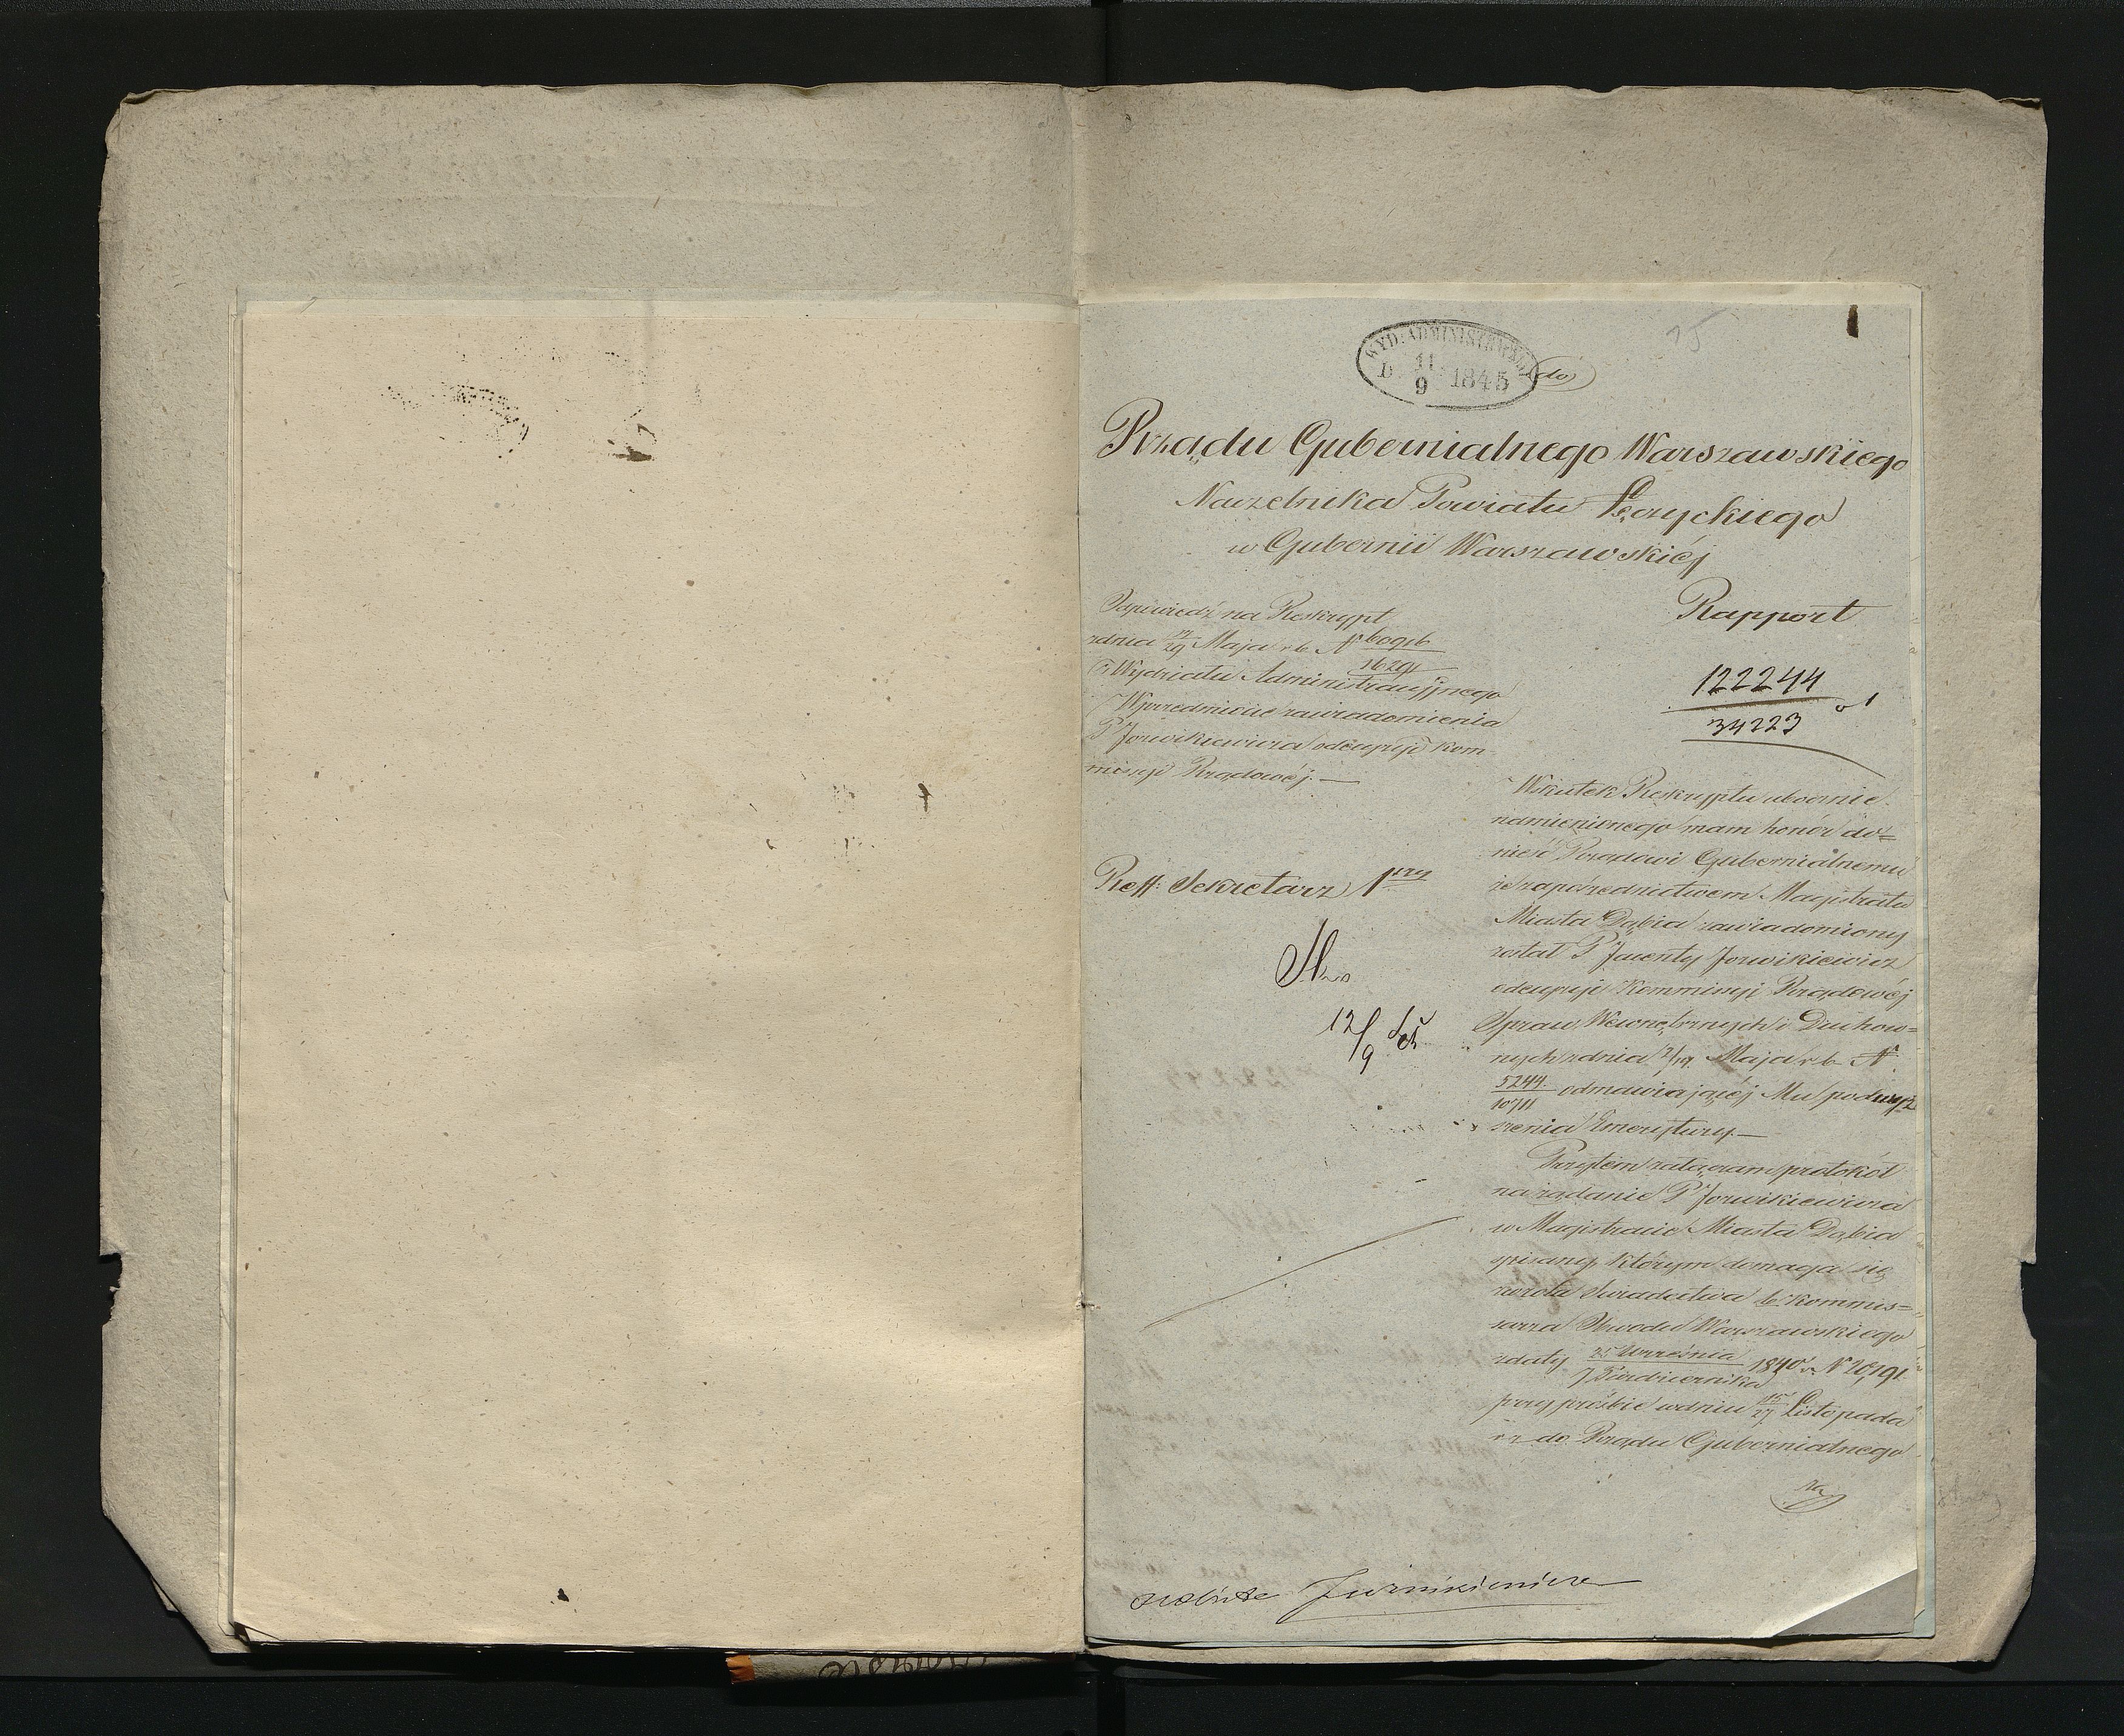 15
WYD. ADMINISTRACYJNY
D. 11/9 1845
do
Rządu Gubernialnego Warszawskiego
Naczelnika Powiatu Łęczyckiego
w Gubernii Warszawskiéj
Rapport
Odpowiedź na Reskrypt
zdnia 17/29 Maja r b N 60916/16291
Wydziatu Administracyjnego
W przedmiocie zawiadomienia
P Jozwikiewicza o decyzyi Kom
missyi Rządowéj. —
122244
34223
Reff: Sekretarz 1szy
12/9
Wskutek Reskryptu ubocznie
namienionego mam honór do=
nieść Rządowi Gubernialnemu
że zapośrednictwem Magistratu
Miasta Dąbia zawiadomiony
zostat P Jacenty Jozwikiewicz
o decyzyi Kommissyi Rządowéj
Spraw Wewnętrznych i Duchow=
nych zdnia 7/19 Maja r b N.
5244/10711 odmawiającéj Mu podwyż
szenia Emerytury. —
Przytem zataczam protokół
na żądanie P Jozwikiewicza
w Magistracie Miasta Dąbia
spisany, którym domaga się
zwrotu Swiadectwa b: Kommis=
sarza Obwodu Warszawskiego
zdaty 25 Września/7 Październiku 1840 r N 20,191.
przy prośbie wdniu 15/27 Listopada
t r do Rządu Gubernialnego